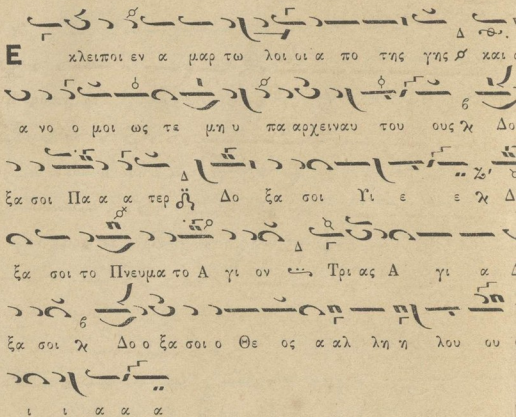 Ε κλειποι εν α μαρ τω λοι οι α πο της γης και
α νο ο μοι ως τε μη υ πα αρχειναυ του ους Δο
ξα σοι Πα α α τερ Δο ξα σοι Υι ε ε Δ
ξα σοι το Πνευμα το Α γι ον Τρι ας Α γι α Δ
ξα σοι Δο ο ξα σοι ο Θε ος α αλ λη η λου ου
ι ι α α α